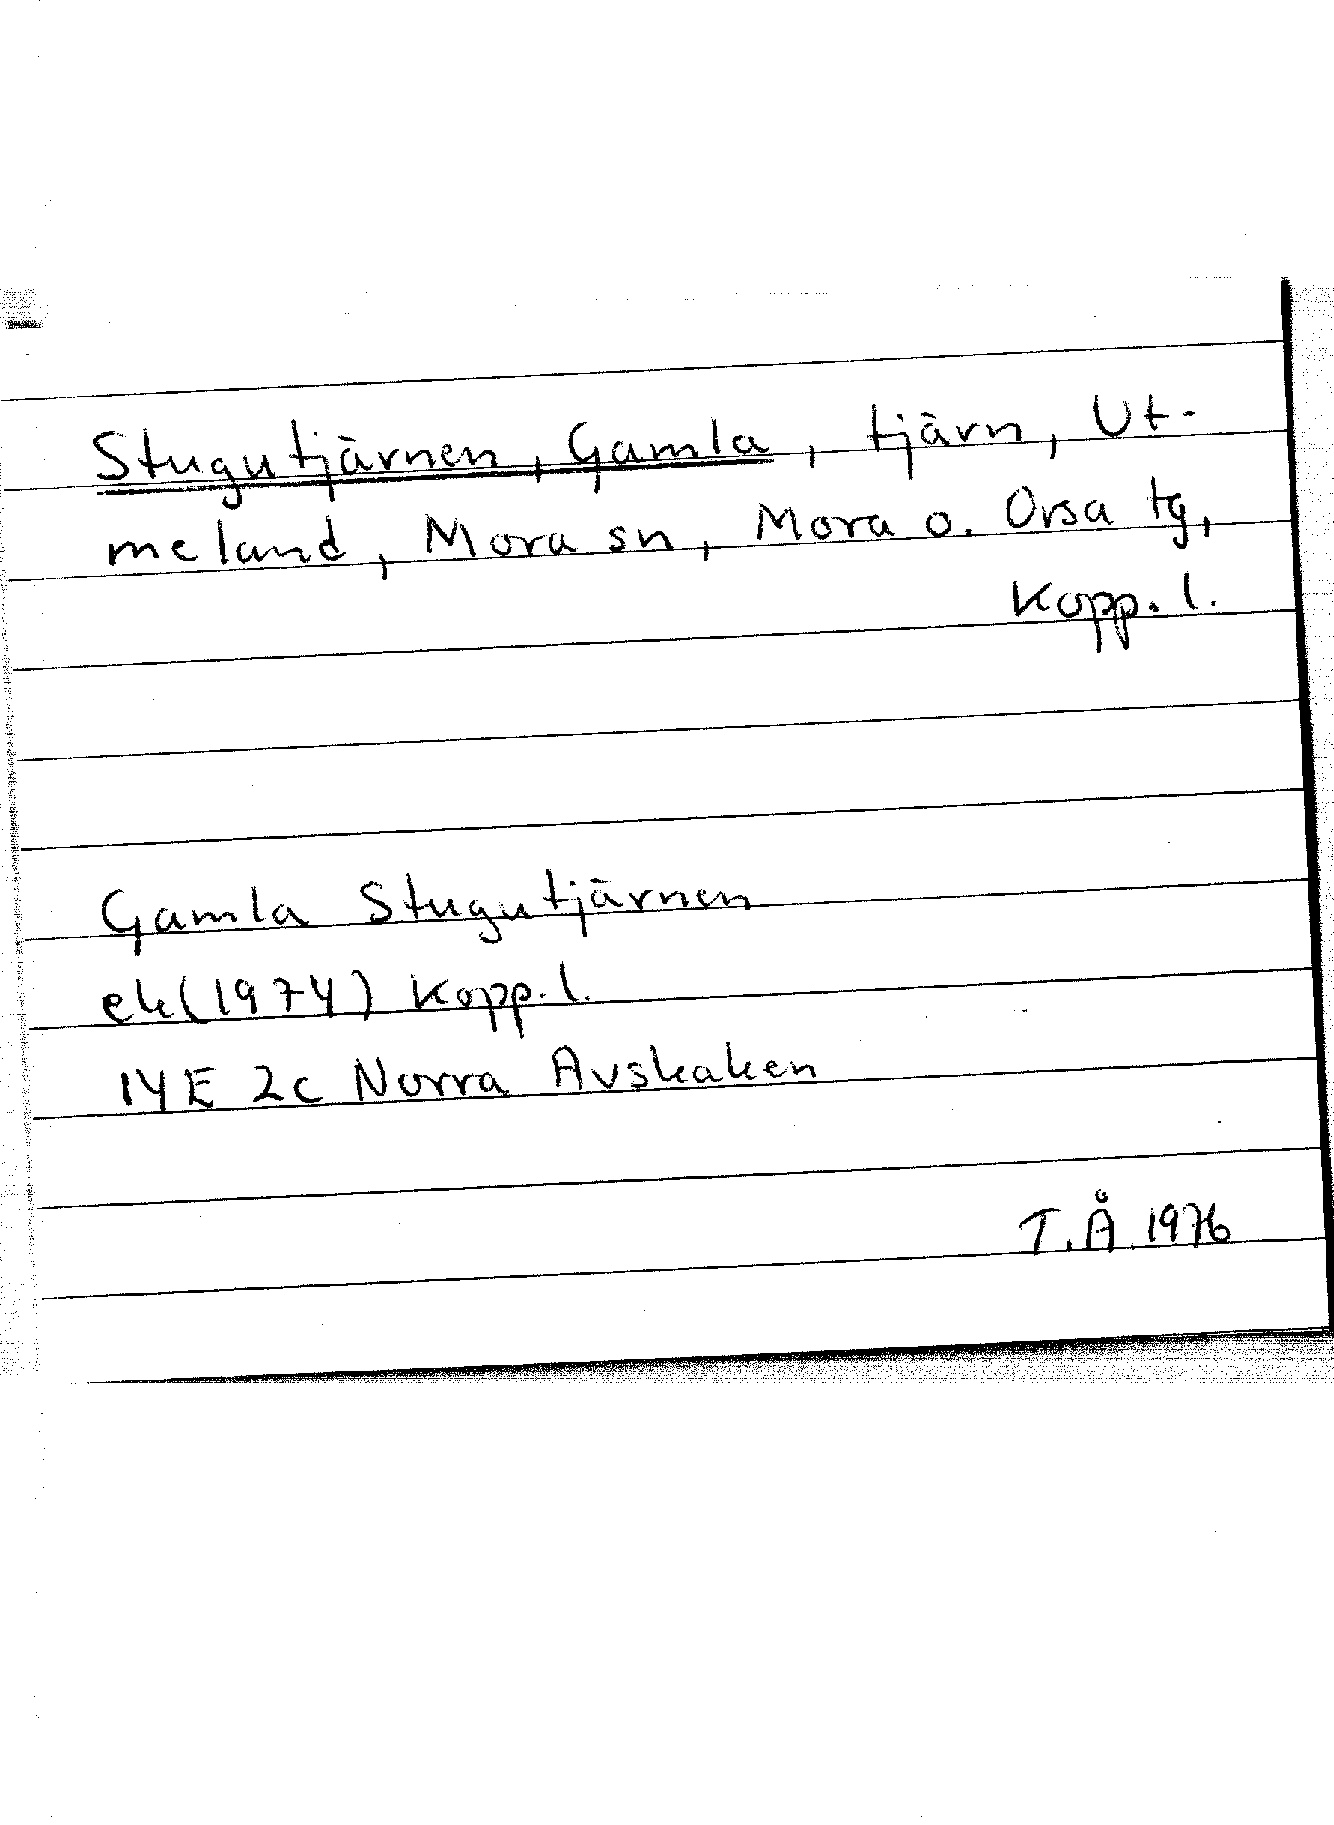 Stugutjärnen, Gamla, tjärn, Ut-
meland, Mora sn, Mora o. Orsa tg,
Kopp. l.
Gamla Stugutjärnen
ek(1974) Kopp. l.
14E 2c Norra Avskaken
T.Å. 1976